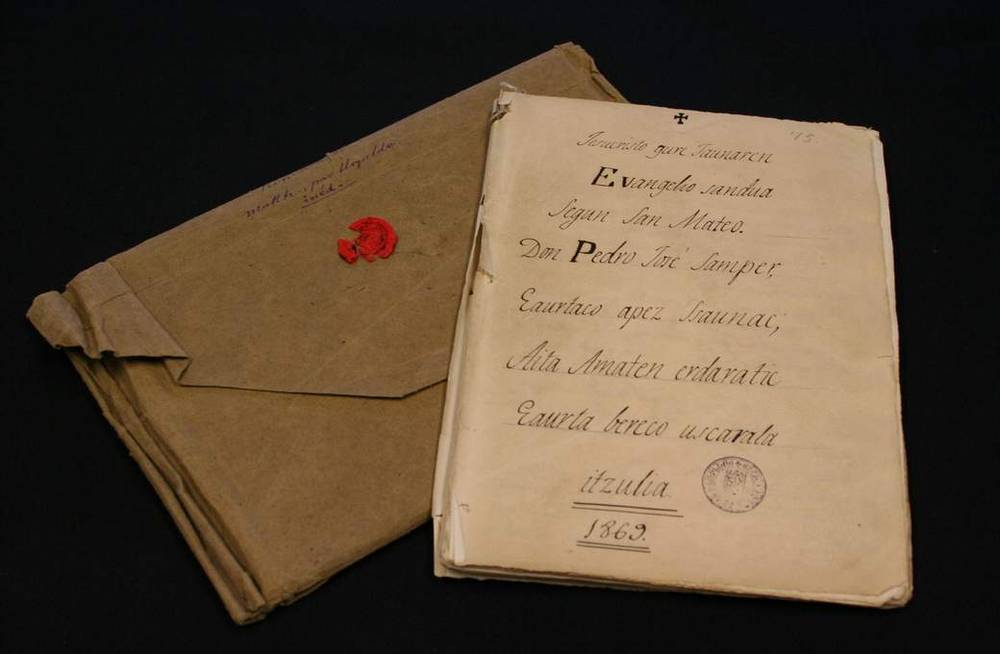 ✠
'75
Jesucristo gure Jaunaren
Evangelio sandua
Segun San Mateo.
Don Pedro José Samper,
Eaurtaco apez Jsaunac,
Aita Amaten erdaratic
Eaurta bereco uscarala
itzulia
1869.